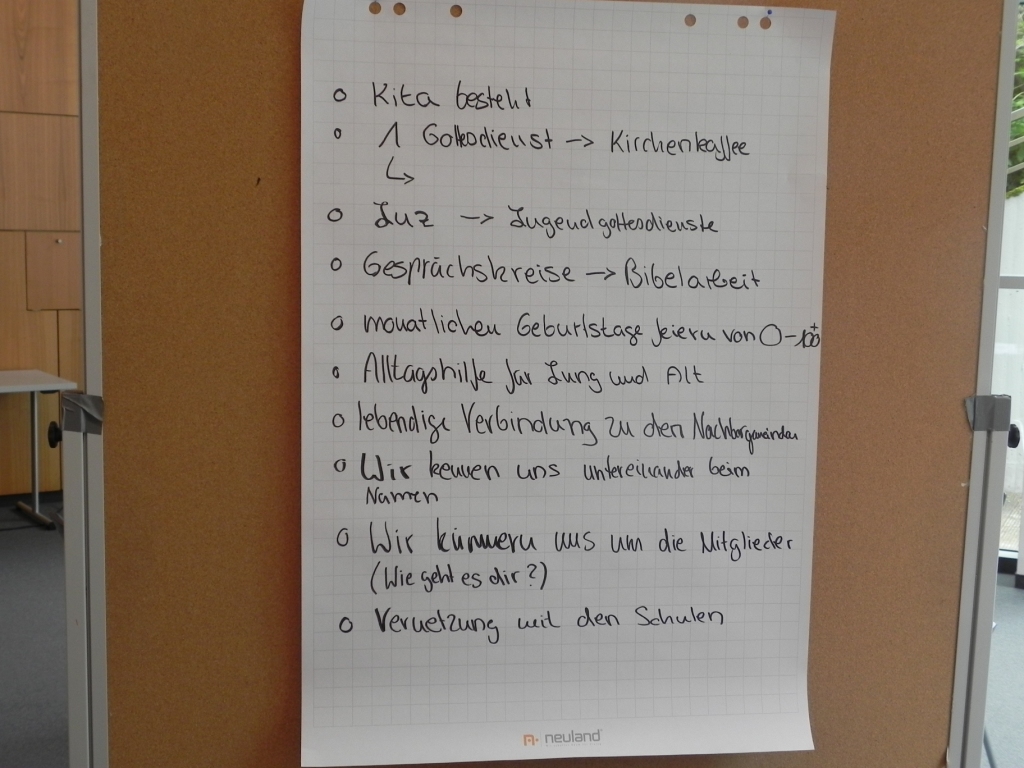 o Kita besteht
o 1 Gottesdienst -> Kirchenkaffee
↳
o Juz -> Jugendgottesdienste
o Gesprächskreise -> Bibelarbeit
o monatlichen Geburtstage feiern von 0-100+
o Alltagshilfe für Jung und Alt
o lebendige Verbindung zu den Nachbargemeinden
o Wir kennen uns untereinander beim
Namen
o Wir kümmern uns um die Mitglieder
(Wie geht es dir?)
o Vernetzung mit den Schulen
neuland